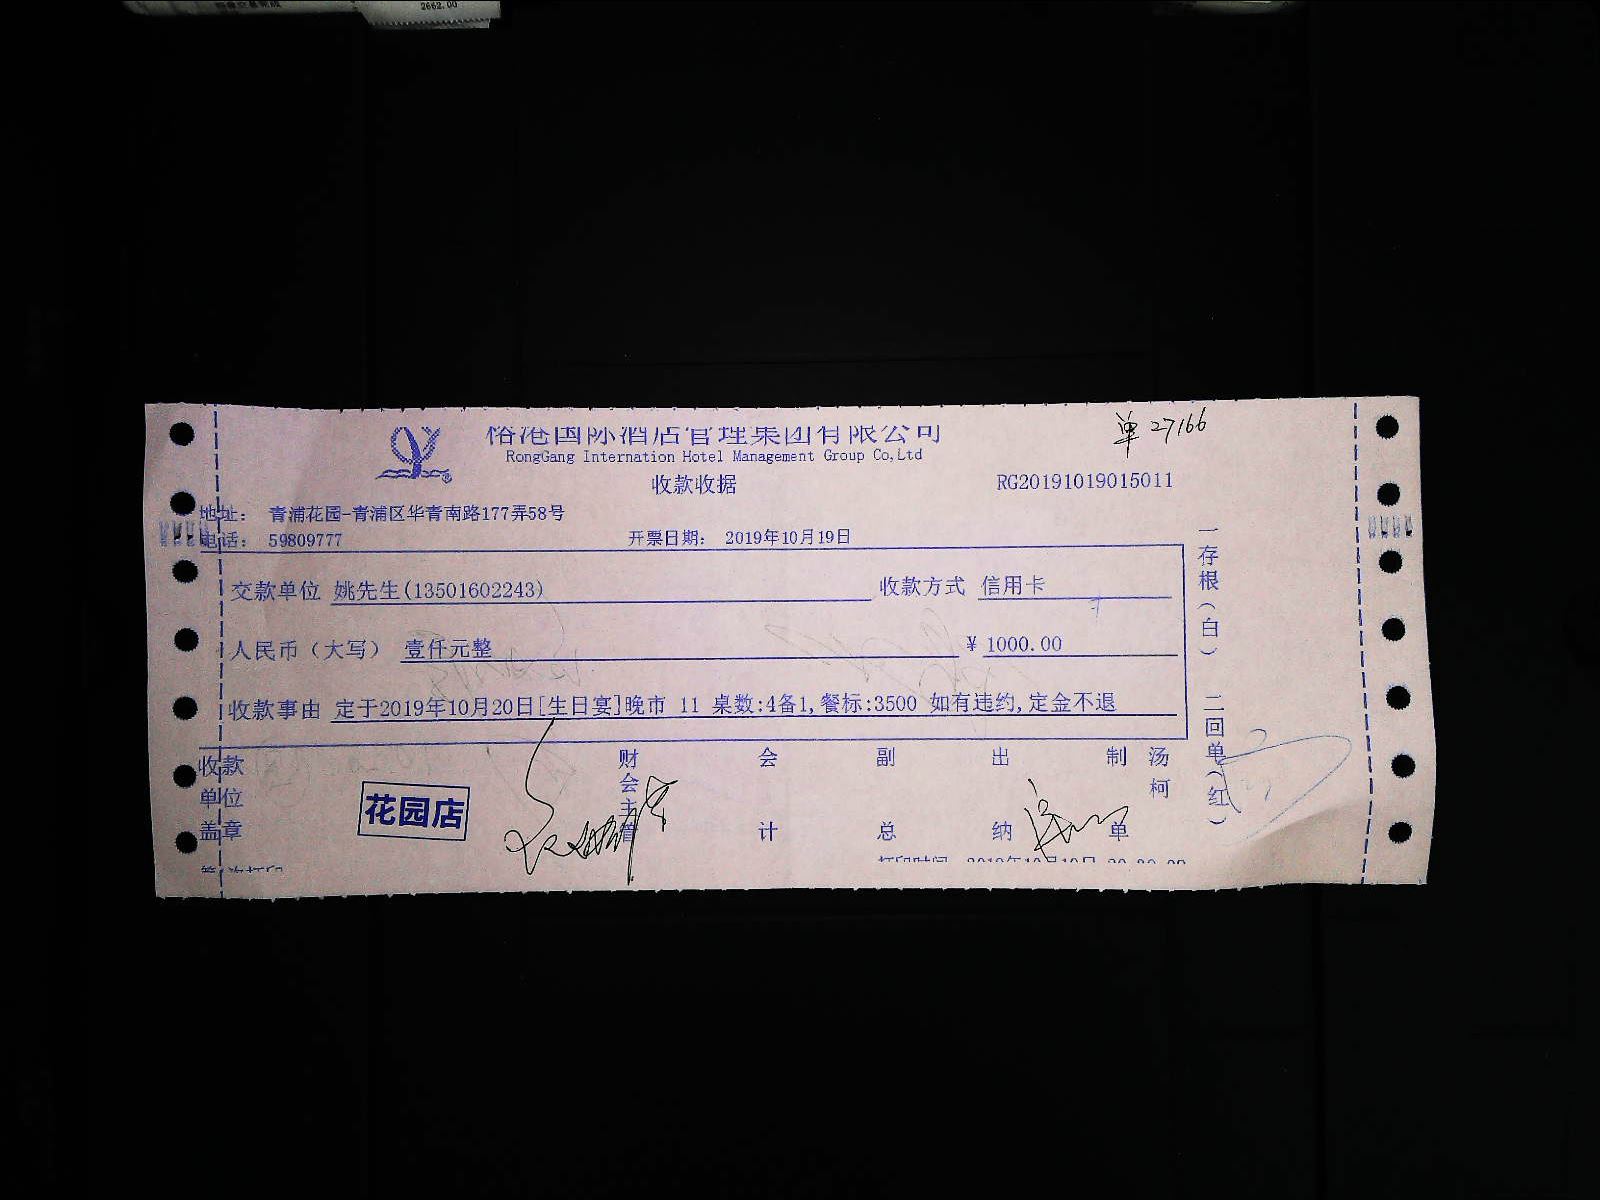 2662.00
单 27166
港国际酒店管理集团有限公司
RongGang Internation Hotel Management Group Co,Ltd
收款收据 RG20191019015011
地址: 青浦花园-青浦区华青南路177弄58号
电话: 59809777 开票日期: 2019年10月19日
交款单位 姚先生(13501602243) 收款方式 信用卡
人民币(大写) 壹仟元整 ¥ 1000.00
收款事由 定于2019年10月20日[生日宴]晚市 11 桌数:4备1,餐标:3500 如有违约,定金不退
一存根(白) 二回单(红)
收款单位盖章 花园店 财会主管 会计 副总 出纳 制单 汤柯
打印时间 2019年10月19日